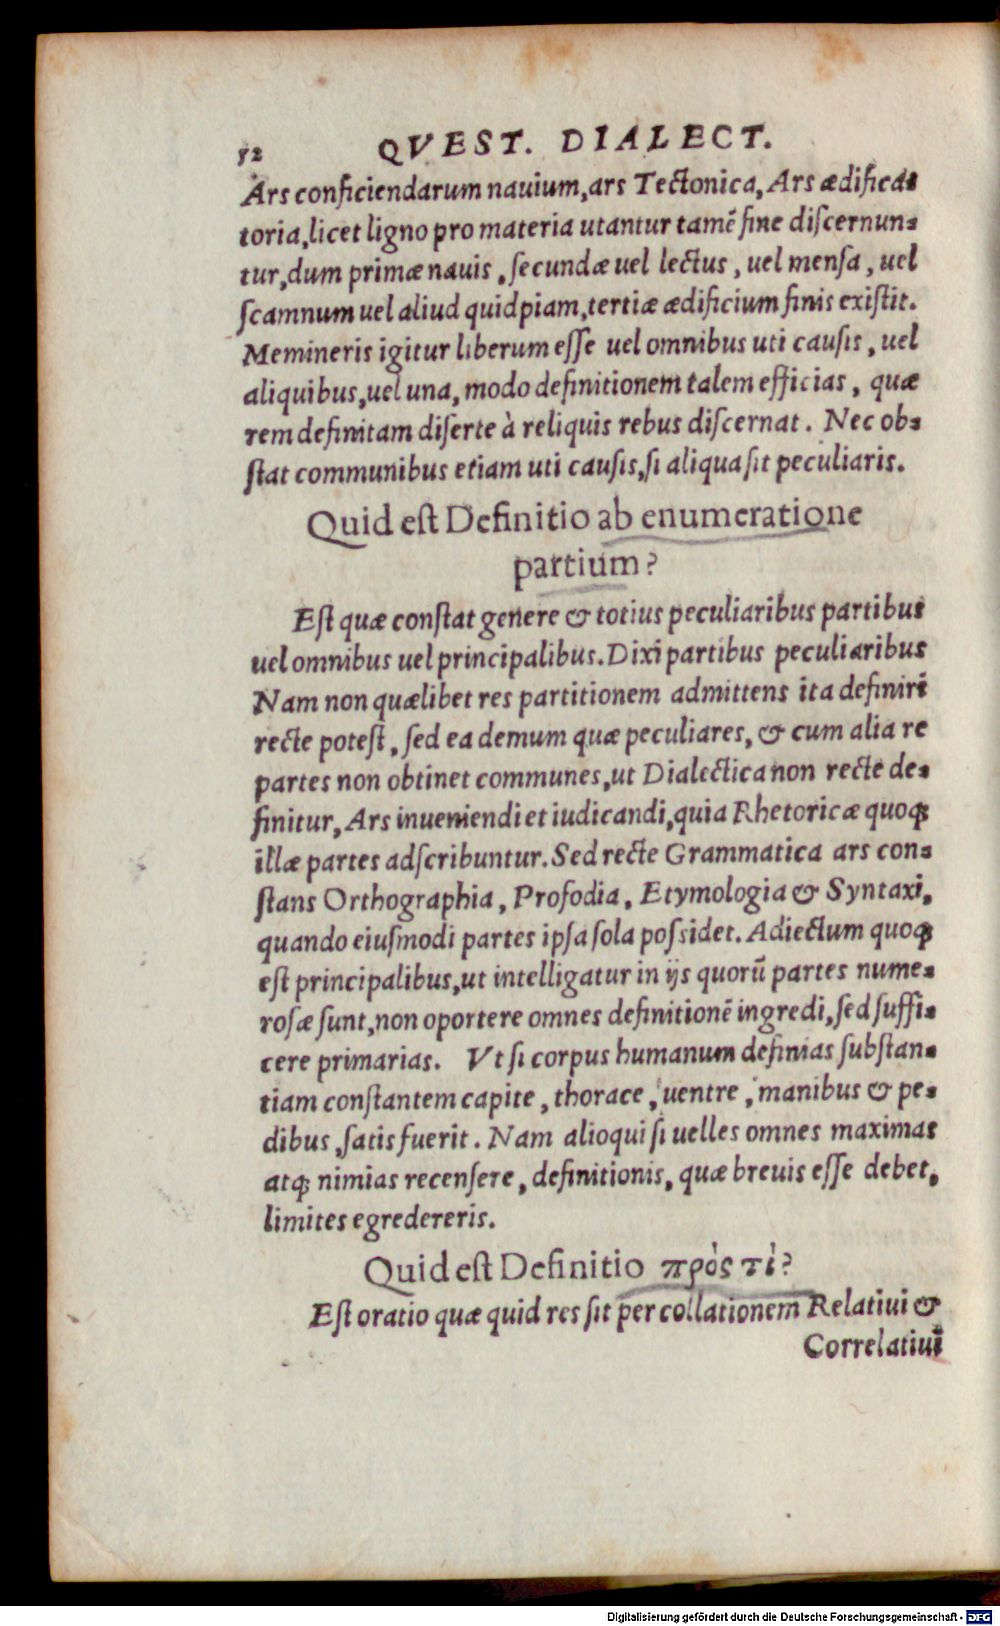 52 QVEST. DIALECT.
Ars conficiendarum nauium, ars Tectonica, Ars ædifica⸗
toria, licet ligno pro materia utantur tamẽ fine discernun⸗
tur, dum primæ nauis, secundæ uel lectus, uel mensa, uel
scamnum uel aliud quidpiam, tertiæ ædificium finis existit.
Memineris igitur liberum esse uel omnibus uti causis, uel
aliquibus, uel una, modo definitionem talem efficias, quæ
rem definitam diserte à reliquis rebus discernat. Nec ob⸗
stat communibus etiam uti causis, si aliqua sit peculiaris.
Quid est Definitio ab enumeratione
partium?
Est quæ constat genere & totius peculiaribus partibus
uel omnibus uel principalibus. Dixi partibus peculiaribus
Nam non quælibet res partitionem admittens ita definiri
recte potest, sed ea demum quæ peculiares, & cum alia re
partes non obtinet communes, ut Dialectica non recte de⸗
finitur, Ars inueniendi et iudicandi, quia Rhetoricæ quoq;
illæ partes adscribuntur. Sed recte Grammatica ars con⸗
stans Orthographia, Prosodia, Etymologia & Syntaxi,
quando eiusmodi partes ipsa sola possidet. Adiectum quoq;
est principalibus, ut intelligatur in ijs quorũ partes nume⸗
rosæ sunt, non oportere omnes definitionẽ ingredi, sed suffi⸗
cere primarias. Vt si corpus humanum definias substan⸗
tiam constantem capite, thorace, uentre, manibus & pe⸗
dibus, satis fuerit. Nam alioqui si uelles omnes maximas
atq; nimias recensere, definitionis, quæ breuis esse debet,
limites egredereris.
Quid est Definitio πρὸς τὶ?
Est oratio quæ quid res sit per collationem Relatiui &
Correlatiui
Digitalisierung gefördert durch die Deutsche Forschungsgemeinschaft - DFG